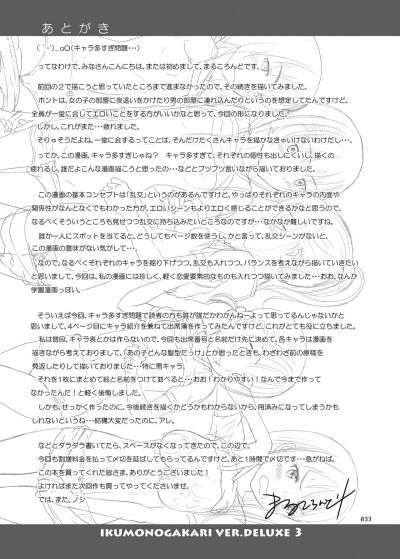 あとがき
(´-)_oO(キャラ多すぎ問題・・・)
ってなわけで、みなさんこんにちは、または初めまして、まるころんどです。
前回の2で描こうと思っていたところまで進まなかったので、その続きを描いてみました。
ホントは、女の子の部屋に夜這いをかけたり男の部屋に連れ込んだりというのを想定してたんですけど、
全員が一堂に会してエロいことをする方がいいかなと思って、今回の形になりました。
しかし、これがまた・・・疲れました。
そりゃそうだよね。一堂に会するってことは、そんだけたくさんキャラを描かなきゃいけないわけだし・・・。
って、この漫画、キャラ多すぎじゃね?　キャラ多すぎて、それぞれの個性も出しにくいし、描くの
疲れるし、誰だよこんな漫画描こうと思ったの・・・などとブツブツ言いながら描いておりました。
この漫画の基本コンセプトは「乱交」というのがあるんですけど、やっぱりそれぞれのキャラの内面や
関係性がなんとなくでもわかった方が、エロいシーンもよりエロく感じることができるかなと思うので、
なるべくそういうところも見せつつ乱交に持ち込みたいところなのですが・・・なかなか難しいですね。
誰か一人にスポットを当てると、どうしてもページ数を使うし、かと言って、乱交シーンがないと、
この漫画の意味がない気がして・・・。
なので、なるべくそれぞれのキャラを掘り下げつつ、乱交も入れつつ、バランスを考えながら描いていきたい
と思いまして、今回は、私の漫画には珍しく、軽く恋愛要素的なものも入れつつ描いてみました・・・おお、なんか
学園漫画っぽい。
そういえば今回、キャラ多すぎ問題で読者の方も誰が誰だかわかんねーよって思ってるんじゃないかと
思いまして、4ページ目にキャラ紹介を兼ねて出席簿を作ってみたんですけど、これがとても役に立ちました。
私は普段、キャラ表とかは作らないので、今回も出席番号と名前だけ先に決めて、各キャラは漫画を
描きながら考えておりまして、「あの子どんな髪型だっけ」とか思ったときも、わざわざ前の原稿を
見返したりして描いてたりして・・・特に男キャラ。
それを1枚にまとめて絵と名前をつけて並べると・・・おお!わかりやすい!なんで今まで作って
なかったんだ!と軽く後悔しました。
しかも、せっかく作ったのに、今後続きを描くかどうかもわからないから、用済みになってしまうかも
しれないというね・・・結構大変だったのに、アレ。
などとダラダラ書いてたら、スペースがなくなってきたので、この辺で。
今回も割増料金を払って〆切を延ばしてもらってるんですけど、あと1時間で〆切です・・・急がねば。
この本を買ってくれた皆さま、ありがとうございました!
よければまた次回作も買ってやってくださいませ。
では、また。ノシ
まるころんど
033
IKUMONOGAKARI VER.DELUXE 3